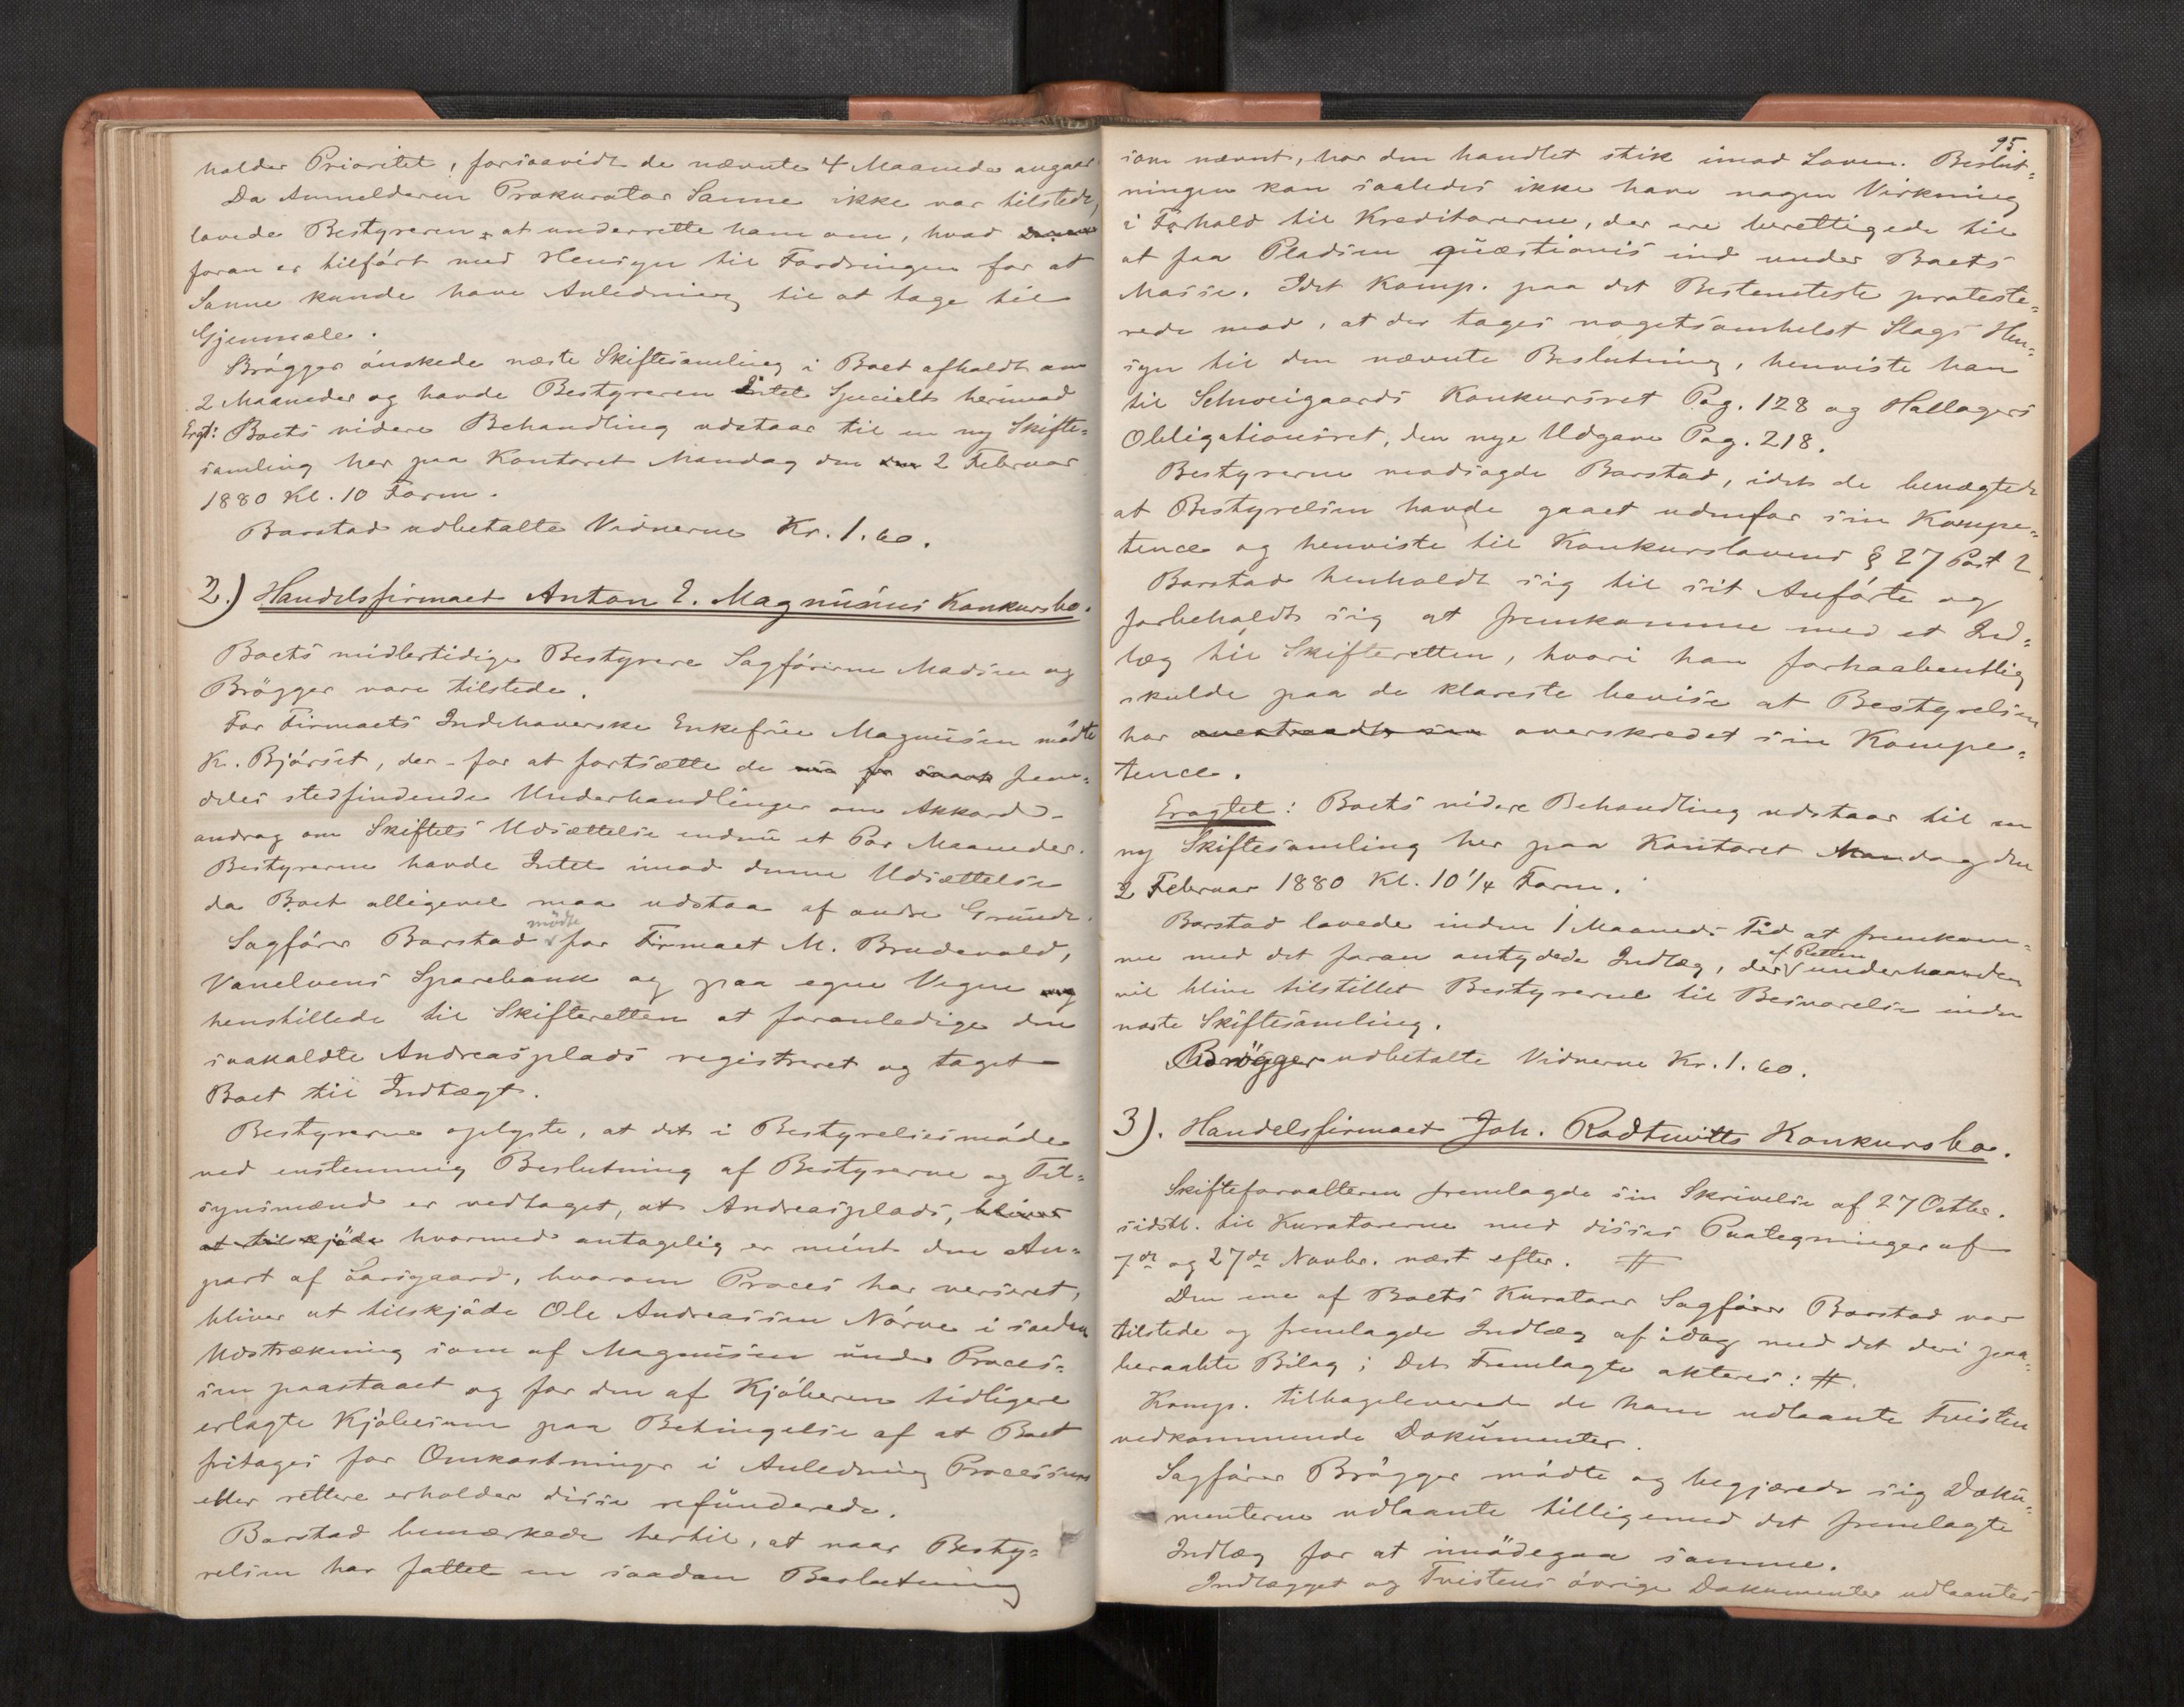 holder Prioritet, forsaavidt de nævnte 4 Maaneder angaar
Da Anmelderen Prokurator Sanne ikke var tilstede,
lovede Bestyreren at underrette ham om, hvad
foran er tilført med Hensyn til Fordringen for at
Sanne kunde have Anledning til at tage til
Gjenmæle.
Brøgger ønskede næste Skiftesamling i Boet afholdt om
2 Maaneder og havde Bestyreren Intet Specielt herimod
Eragt: Boets videre Behandling udstaar til en ny Skifte-
samling her paa Kontoret Mandag den 2 Februar
1880 Kl. 10 Form.
Barstad udbetalte Vidnerne Kr. 1.60.
2.) Handelsfirmaet Anton E. Magnusens Konkursbo.
Boets midlertidige Bestyrere Sagførerne Madsen og
Brøgger vare tilstede.
For Firmaets Indehaverske Enkefrue Magnusen mødte
K. Bjørset, der - for at fortsætte de frem-
deles stedfindende Underhandlinger om Akkord -
androg om Skiftets Udsættelse endnu et Par Maaneder.
Bestyrerne havde Intet imod denne Udsættelse
da Boet alligevel maa udstaa af andre Grunde.
Sagfører Barstad mødte for Firmaet M. Brudevold,
Vanelvens Sparebank og paa egne Vegne og
henstillede til Skifteretten at foranledige den
saakaldte Andreasplads registreret og taget
Boet til Indtægt.
Bestyrerne oplyste, at det i Bestyrelsesmøde
ved enstemmig Beslutning af Bestyrerne og Til-
synsmænd er vedtaget, at Andreasplads, bliver
at tilskjøde hvormed antagelig er ment den An-
part af Larsgaard, hvorom Proces har verseret,
bliver at tilskjøde Ole Andreassen Nørve i saadan
Udstrækning som af Magnusen under Proces-
sen paastaaet og for den af Kjøberen tidligere
erlagte Kjøbesum paa Betingelse af at Boet
fritages for Omkostninger i Anledning Processen
eller rettere erholder disse refunderede.
Barstad bemærkede hertil, at naar Besty-
relsen har fattet en saadan Beslutning
95.
som nævnt, har den handlet stik imod Loven. Beslut-
ningen kan saaledes ikke have nogen Virkning
i Forhold til Kreditorerne, der ere berettigede til
at faa Pladsen quæstionis ind under Boets
Masse. Idet Komp. paa det Bestemteste proteste-
rede mod, at der tages nogetsomhelst Slags Hen-
syn til den nævnte Beslutning, henviste han
til Schweigaards Konkursret Pag. 128 og Hallagers
Obligationsret, den nye Udgave Pag. 218.
Bestyrerne modsagde Barstad, idet de benægtede
at Bestyrelsen havde gaaet udenfor sin Kompe-
tence og henviste til Konkurslovens § 27 Post 2.
Barstad henholdt sig til sit Anførte og
forbeholdt sig at fremkomme med et Ind-
læg til Skifteretten, hvori han forhaabentlig
skulde paa de klareste bevise at Bestyrelsen
har overtraadt sin overskredet sin Kompe-
tence.
Eragtet: Boets videre Behandling udstaar til en
ny Skiftesamling her paa Kontoret Mandag den
2 Februar 1880 Kl. 10 1/4 Form.
Barstad lovede inden 1 Maaneds Tid at fremkom-
me med det foran antydede Indlæg, der af Retten underhaanden
vil blive tilstillet Bestyrerne til Besvarelse inden
næste Skiftesamling.
Brøgger udbetalte Vidnerne Kr. 1.60.
3). Handelsfirmaet Joh. Rodtwitts Konkursbo.
Skifteforvalteren fremlagde sin Skrivelse af 27 Octbr.
sidstl. til Kuratorerne med disses Paategninger af
7de og 27de Novbr. næst efter. #
Den ene af Boets Kuratorer Sagfører Barstad var
tilstede og fremlagde Indlæg af idag med det deri paa-
beraabte Bilag; Det Fremlagte akteres: #.
Komp. tilbageleverede de ham udlaante Tvisten
vedkommende Dokumenter.
Sagfører Brøgger mødte og begjærede sig Doku-
menterne udlaante tilligemed det fremlagte
Indlæg for at imødegaa samme.
Indlægget og Tvistens øvrige Dokumenter udlaantes